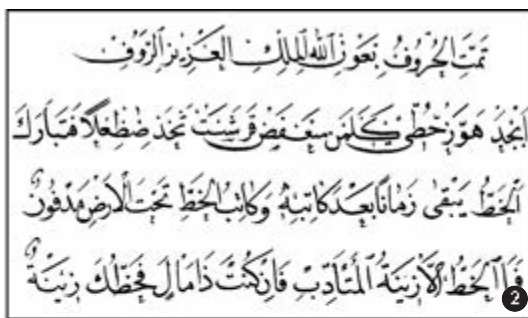 تمت الحروف بعون الله الملك العزيز الرؤف
ابجد هوز حطي كلمن سعفص قرشت ثخذ ضظغلا فتبارك
الخط يبقى زمانا بعد كاتبه وكاتب الخط تحت الارض مدفون
الخط الا زينة المتأدب فان كنت ذا مال فخطك زينة
2